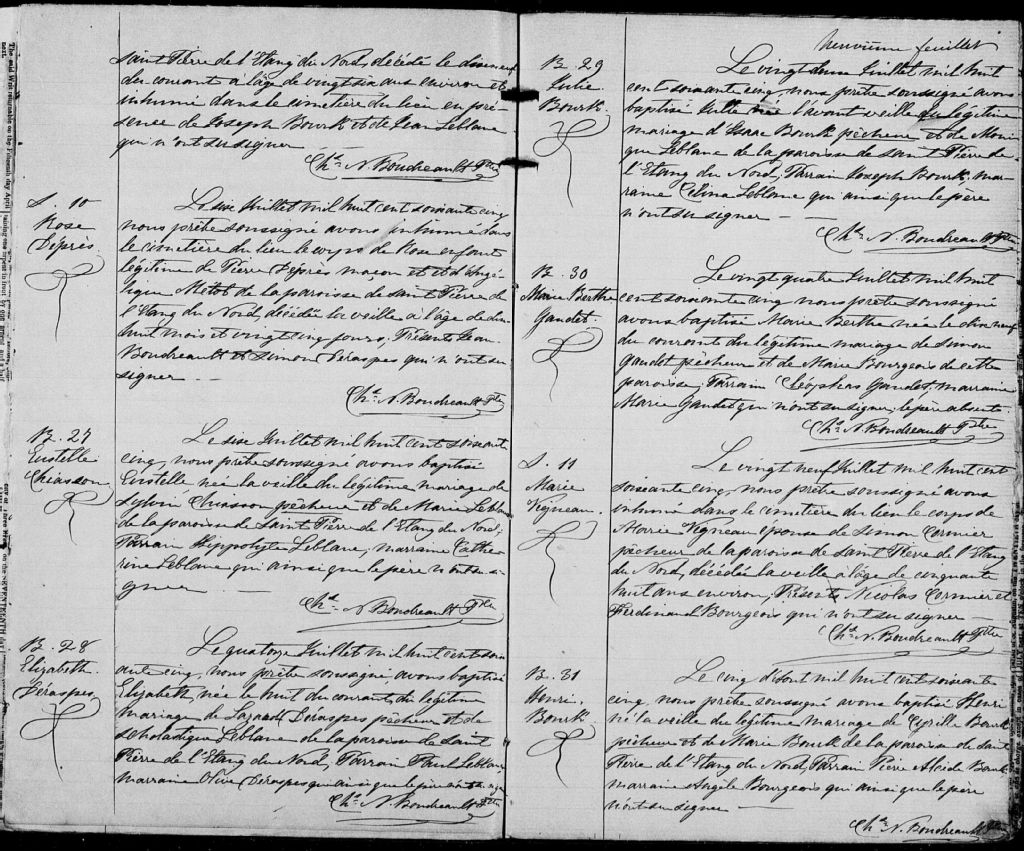 Saint Pierre de l'Etang du Nord, décédé le dix neuf
du courant à l'âge de vingt six ans environ et
inhumé dans le cimetière du lieu en pré-
sence de Joseph Bourk et de Jean Leblanc
qui n'ont su signer
Chs. N. Boudreault Ptre
S. 10
Rose
Déprés
Le dix Juillet mil huit cent soixante cinq
nous prêtre soussigné avons inhumé dans
le cimetière du lieu le corps de Rose enfant
légitime de Pierre Déprés maçon et et d'Angé-
lique Metot de la paroisse de Saint Pierre de
l'Etang du Nord, décédée la veille à l'âge de dix
huit mois et vingt cinq jours, Présents Jean
Boudreault et Simon Déraspes qui n'ont su
signer
Chs. N. Boudreault Ptre
B. 27
Eustelle
Chiasson
Le dix Juillet mil huit cent soixante
cinq, nous prêtre soussigné avons baptisé
Eustelle née la veille du légitime mariage de
Sylvin Chiasson pêcheur et de Marie Leblanc
de la paroisse de Saint Pierre de l'Etang du Nord,
Parrain Hippolyte Leblanc, marraine Cathe-
rine Leblanc qui ainsi que le père n'ont su si-
gner
Chs. N. Boudreault Ptre
B. 28
Elizabeth
Déraspes
Le quatorze Juillet mil huit cent soix
ante cinq, nous prêtre soussigné, avons baptisé
Elizabeth, née le huit du courant, du légitime
mariage de Lazard Déraspes pêcheur et de
Scholastique Leblanc de la paroisse de Saint
Pierre de l'Etang du Nord, Parrain Paul Leblanc,
marraine Olive Déraspes qui ainsi que le père n'ont su signer
Chs. N. Boudreault Ptre
Neuvième feuillet
B. 29
Julie
Bourk
Le vingt deux Juillet mil huit
cent soixante cinq, nous prêtre soussigné avons
baptisé Julie née l'avant veille du légitime
mariage d'Isaac Bourk pêcheur et de Moni
que Leblanc de la paroisse de Saint Pierre de
l'Etang du Nord, Parrain Joseph Bourk, mar-
raine Célina Leblanc qui ainsi que le père
n'ont su signer
Chs. N. Boudreault Ptre
B. 30
Marie Berthe
Gaudet
Le vingt quatre Juillet mil huit
cent soixante cinq nous prêtre soussigné
avons baptisé Marie Berthe née le dix neuf
du courant du légitime mariage de Simon
Gaudet pêcheur et de Marie Bourgeois de cette
paroisse, Parrain Gaudet, marraine
Marie Gaudet qui n'ont su signer, le père absent.
Chs. N. Boudreault Ptre
S. 11
Marie
Vigneau
Le vingt neuf Juillet mil huit cent
soixante cinq, nous prêtre soussigné avons
inhumé dans le cimetière du lieu le corps de
Marie Vigneau épouse de Simon Cormier
pêcheur de la paroisse de Saint Pierre de l'Etang
du Nord, décédée la veille à l'âge de cinquante
huit ans environ, Présents Nicolas Cormier et
Ferdinand Bourgeois qui n'ont su signer
Chs. N. Boudreault Ptre
B. 31
Henri
Bourk
Le cinq d'Aout mil huit cent soixante
cinq, nous prêtre soussigné avons baptisé Henri
né la veille du légitime mariage de Cyrille Bourk
pêcheur et de Marie Bourk de la paroisse de Saint
Pierre de l'Etang du Nord, Parrain Pierre Alcide Bourk
marraine Angèle Bourgeois qui ainsi que le père
n'ont su signer
Chs. N. Boudreault Ptre